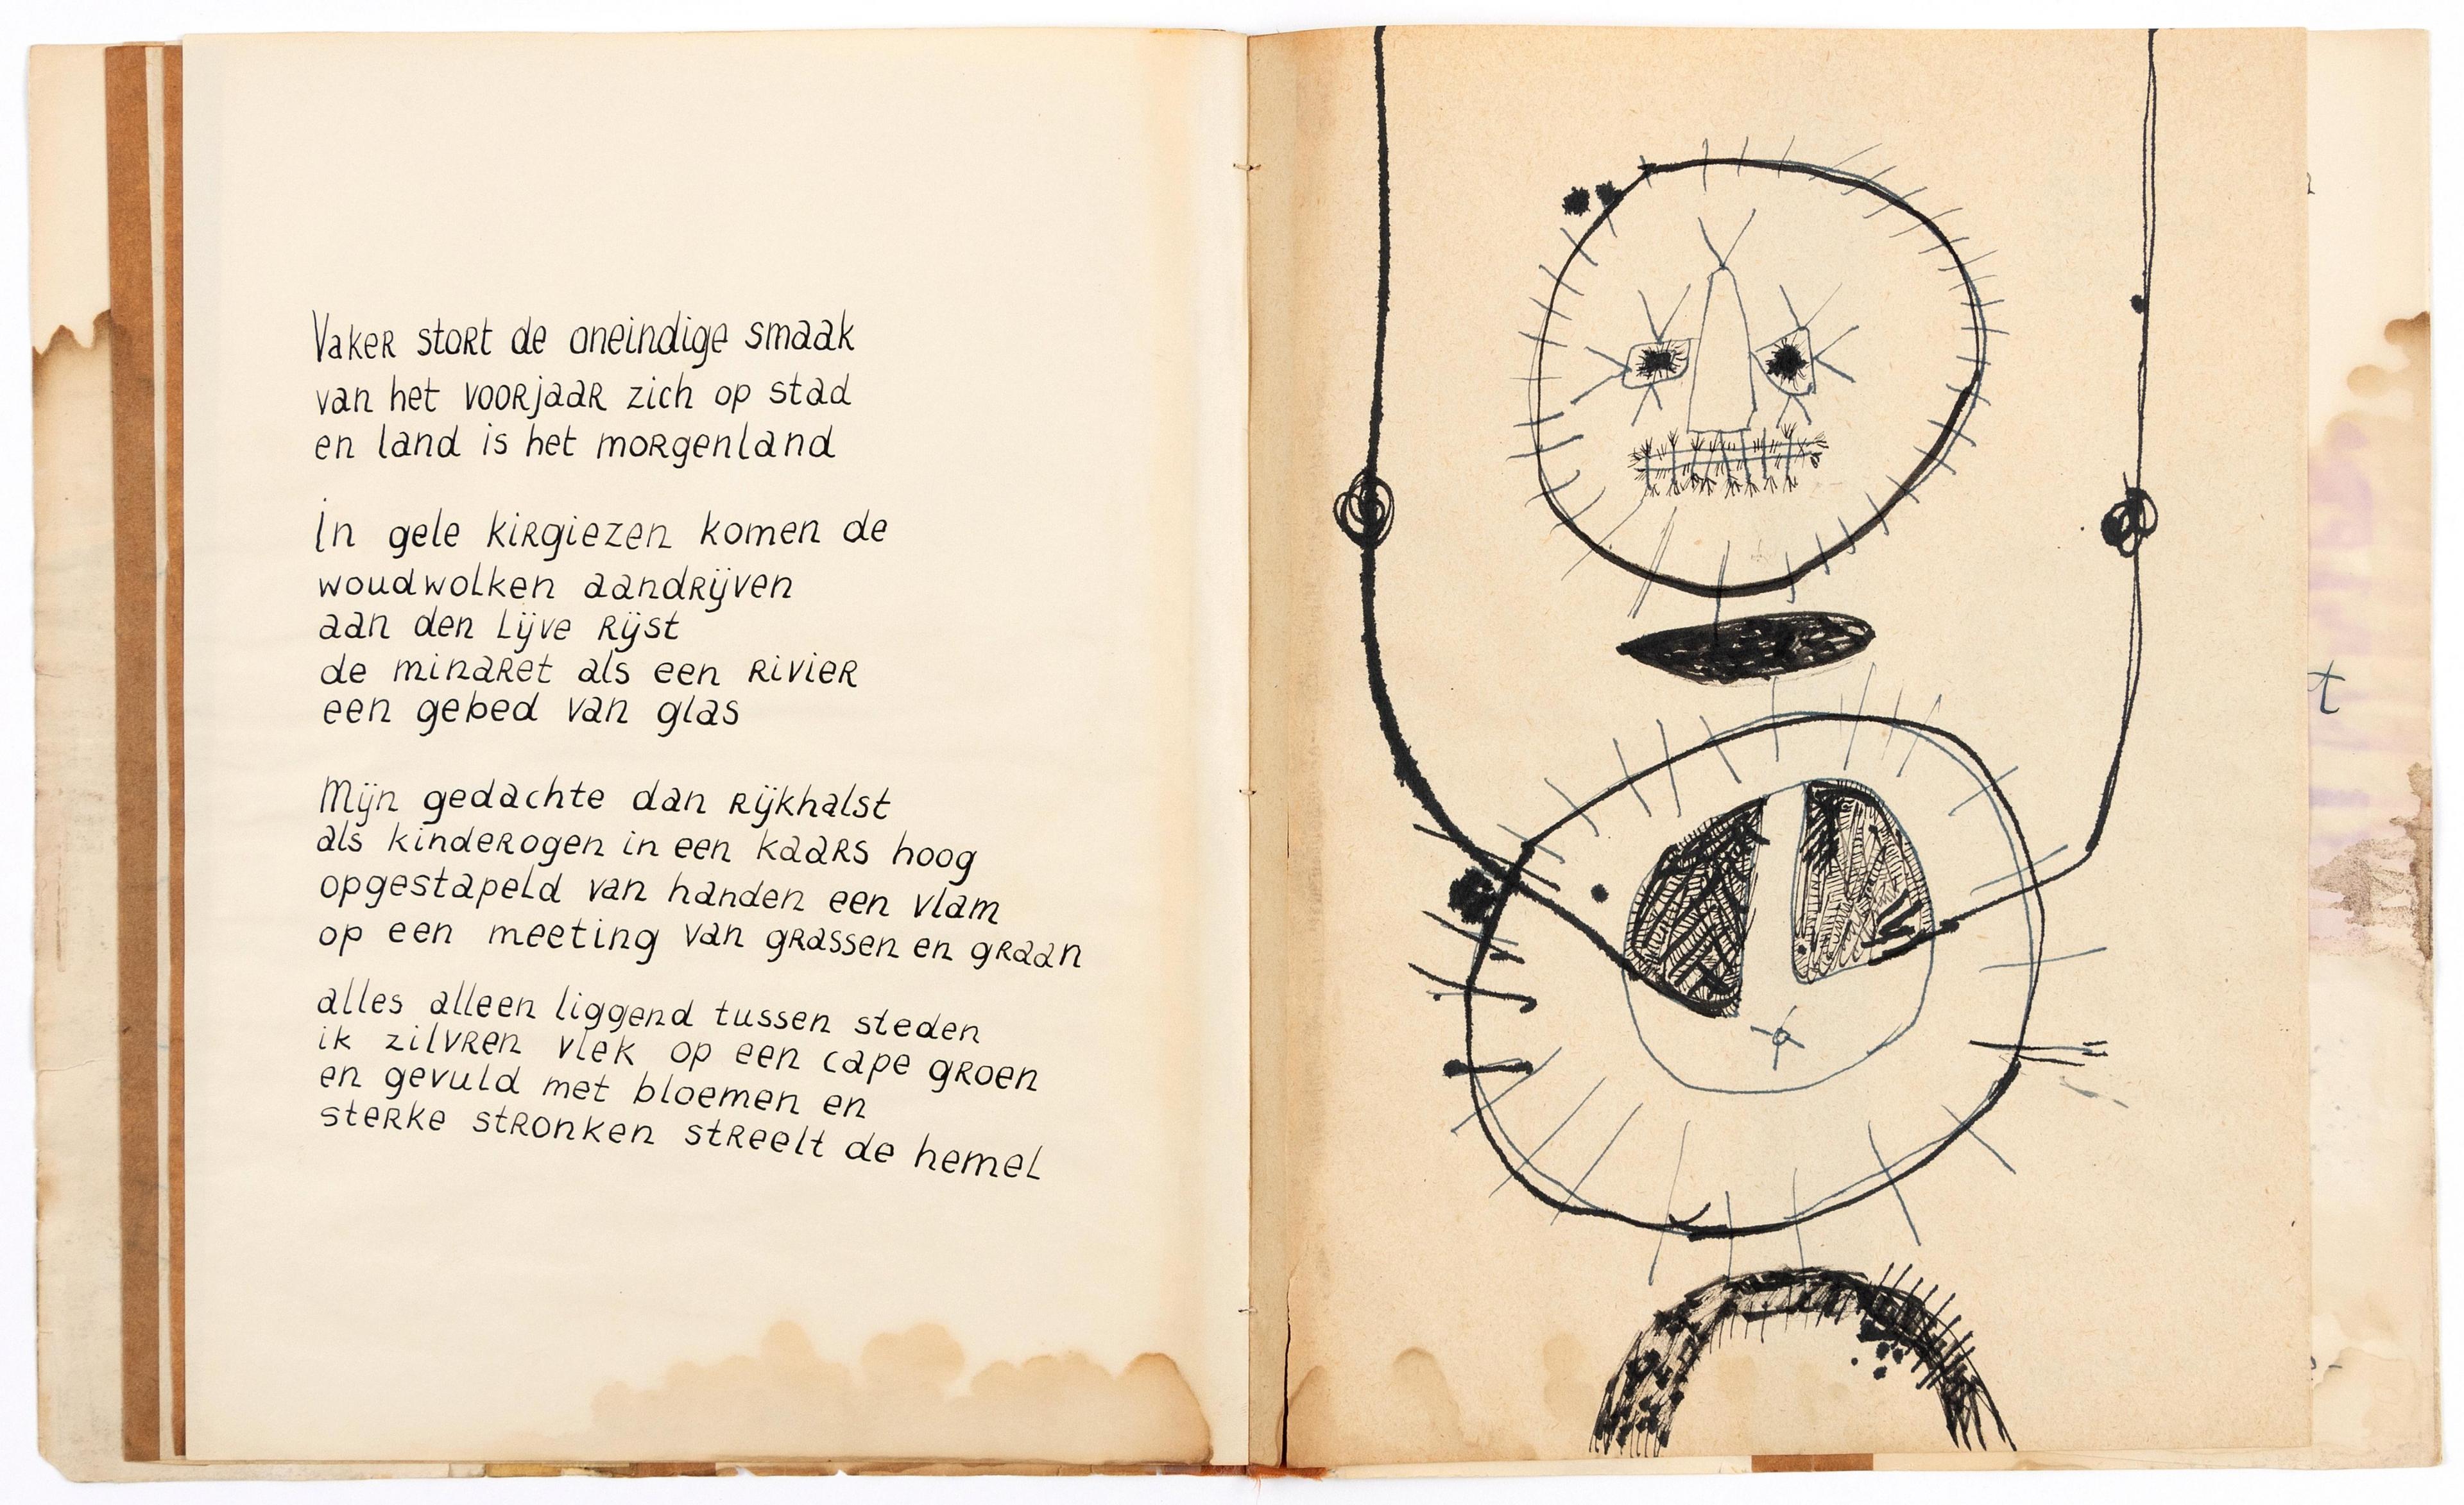 Vaker stort de oneindige smaak
van het voorjaar zich op stad
en land is het morgenland
In gele kirgiezen komen de
woudwolken aandrijven
aan den lijve rijst
de minaret als een rivier
een gebed van glas
Mijn gedachte dan rijkhalst
als kinderogen in een kaars hoog
opgestapeld van handen een vlam
op een meeting van grassen en graan
alles alleen liggend tussen steden
ik zilvren vlek op een cape groen
en gevuld met bloemen en
sterke stronken streelt de hemel
t